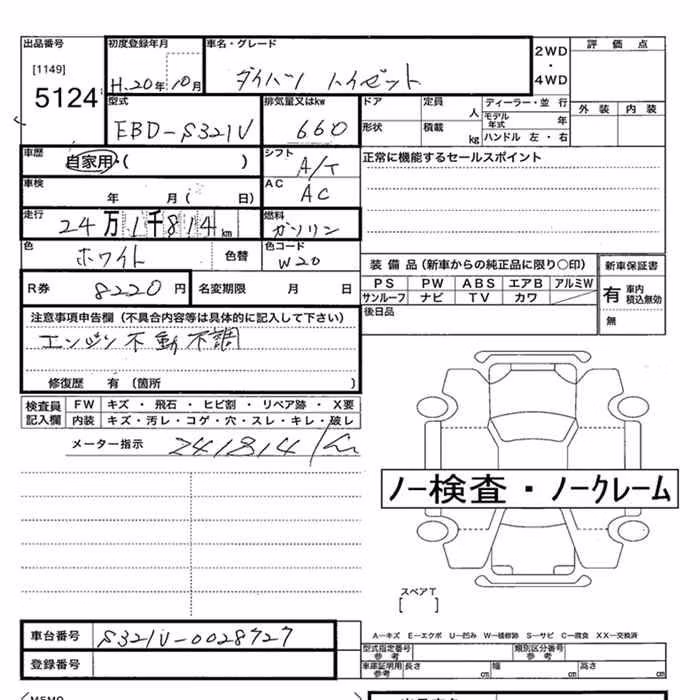 出品番号 初度登録年月 車名・グレード 2WD ・ 4WD 評価点
[1149]
5124 H.20年10月 ダイハツ ハイゼット
型式 排気量又はkw ドア 定員 人 ディーラー・並行 外装 内装
EBD-S321V 660 形状 積載 kg モデル年式 年
ハンドル 左・右
車歴 自家用・( ) シフト A/T 正常に機能するセールスポイント
車検 年 月( 日) AC AC
走行 24万1千814km 燃料 ガソリン
色 ホワイト 色替 色コード W20
装備品(新車からの純正品に限り○印) 新車保証書
R券 8220円 名変期限 月 日 PS PW ABS エアB アルミW 有 車内積込無効
サンルーフ ナビ TV カワ
注意事項申告欄(不具合内容等は具体的に記入して下さい) 後日品 無
エンジン不動不調
修復歴 有(箇所 )
検査員記入欄 FW キズ・飛石・ヒビ割・リペア跡・X要
内装 キズ・汚レ・コゲ・穴・スレ・キレ・破レ
メーター指示 241814km
ノー検査・ノークレーム
スペアT
[ ]
車台番号 S321V-0028727 A-キズ E-エクボ U-凹み W-補修跡 S-サビ C-腐食 XX-交換済
型式指定番号 参考 類別区分番号 参考
登録番号 車庫証明用 参考 長さ cm 幅 cm 高さ cm
MEMO